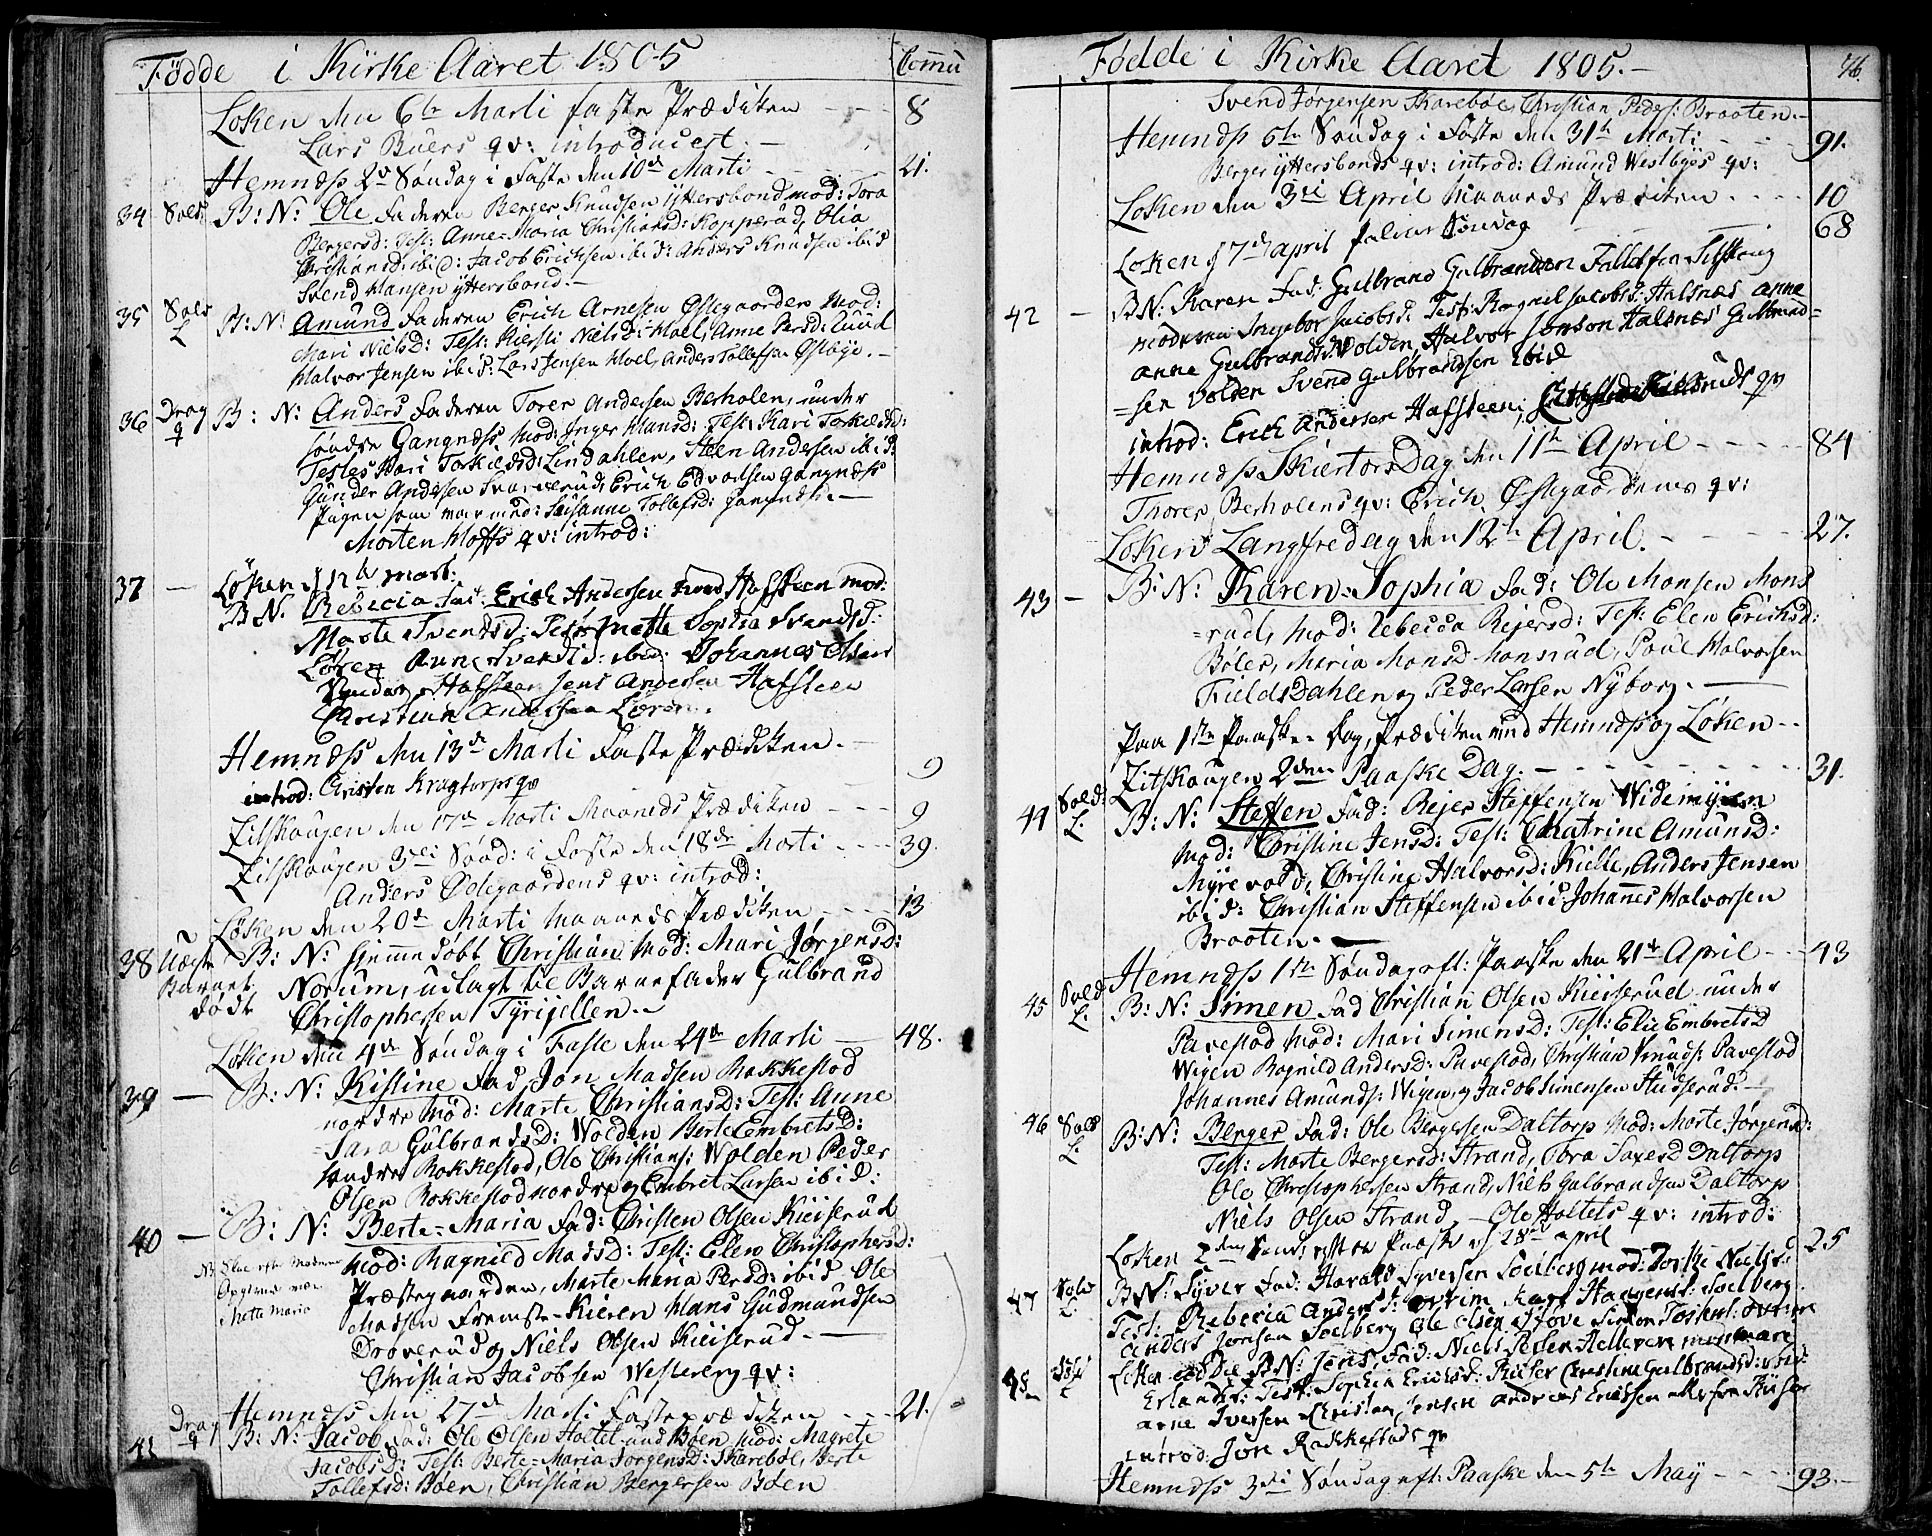 Fødde i Kirke Aaret 1805
Comu
Løken den 6te Marti Faste Prædiken 8
Lars Buers qv: introducest.
Hemness 2den Søndag i Faste den 10de Marti 21.
34 Sold B: N: Ole Faderen Berger Knudsen yttersbond mod: Tora
Bergersd: Test: Anne-Maria Christiansd: Kopperud, Olia
Christiansd: ibid: Jacob Erichsen ibid: Anders Knudsen ibid
Svend Hansen yttersbond.
35 Sold L B: N: Amund Faderen Erich Arnesen Østegaarden Mod:
Mari Nielsd: Test: Kiersti Nielsd: Moel, Anne Persd: Ruud
Halvor Jensen ibid: Lars Jensen Moel, Anders Tollefsen Østbye.
36 Drag q B: N: Anders Faderen Torer Andersen Berholen, under
søndre Gangness Mod: Inger Hansd: Test: Kari Torkildsd:
Mari Torkildsd: Lindahlen, Steen Andersen ibid:
Gunder Andersen Svarverud, Erich Edvardsen Gangness
Pigen som var med: Susanne Tollefsd: Gangness.
Morten Hoffs qv: introd:
37 Løken d 12te mart:
BN. Rebecia fad: Erich Andersen Hafsteen mod:
Marte Svendsd: Test: Mette Sophia Svendsd:
Løren Anne Svendsd: ibid: Johannes Olsen
Hafsteen Jens Andersen Hafsteen
Christian Andersen Løren.
Hemness den 13de Marti Faste Prædiken.
introd: Cristen Kragtorps qv 9
Zitskougen den 17de Marti Maaneds Prædiken 9
Zitskougen 3die Sønd: i Faste den 18de Marti 39.
Anders Østegaardens qv: introd:
Løken den 20de Marti Maaneds Prædiken 13
38 Uægte Barnet dødt B: N: Hjemmedøbt Christian Mod: Mari Jørgensd:
Norum, udlagt til Barnefader Gulbrand
Christophersen Tyrijellen.
Løken den 4de Søndag i Faste den 24de Marti 48.
39 B: N: Kistine Fad Jon Madsen Rakkestad
nordre Mod: Marte Christiansd: Test: Anne
Sara Gulbrandsd: Wolden Berte Embretsd:
søndre Rakkestad, Ole Christians: Wolden Peder
Olsen Rakkestad nordre og Embret Larsen ibid:
40 B: N: Berte-Maria Fad: Christen Olsen Kieiserud
Mod: Ragnild Madsd: Test: Elen Christophersd:
Præstegaarden, Marte Maria Persd: ibid Ole
Madsen Fremste-Kieren Hans Gudmundsen
Drøverud og Niels Olsen Kieiserud.
Christian Jacobsen Westereng qv:
Hemness den 27de Marti Fasteprædiken 21.
41 Drag q B: N: Jacob Fad: Ole Olsen Holtet und Bøen, Mod: Magrete
Jacobsd: Test: Berte-Maria Jørgensd: Skarebøl, Berte
Tollefsd: Bøen, Christian Bergersen Bøen
Fødde i Kirke Aaret 1805. 76.
Svend Jørgensen Skarebøl, Christian Peders: Braaten.
Hemness 5te Søndag i Faste den 31te Marti 91.
Berger Yttersbonds qv: introd: Amund Westbyes qv:
Løken den 3die April Maaneds Prædiken 10
Løken d 7de april palme Søndag 68
42 BN: Karen Fad: Gulbrand Gulbrandsen
moderen Ingebor Jacobsd: Test: Ragnil Jacobsd: Halsnæs anne
anne Gulbrandsd: Volden, Halvor Jonson Halsnæs Gulbrand
sen Volden Svend Gulbrandsen ibid
introd: Erich Andersen Hafsteen, qv
Hemness Skiertorsdag den 11te April 84
Thorer Berholens qv: Erich Østegaardens qv:
Løken Langfredag den 12te April. 27.
43 B: N: Karen-Sophia Fad: Ole Monsen Mons
rud, Mod: Rebecca Reiersd: Test: Elen Erichsd:
Bøler, Maria Monsd Monsrud, Poul Halvorsen
Fieldsdahlen og Peder Larsen Nyborg.
Paa 1ste Paaske-Dag, Prædiken ved Hemness og Løken
Zitskougen 2den Paaske Dag. 31.
44 Sold: L. B: N: Steffen Fad: Reier Steffensen Widemyren
Mod: Christine Jensd: Test: Chatrine Amunsd:
Myrevold, Christine Halvorsd: Kielle, Anders Jensen
ibid: Christian Steffensen ibid Johanes Halvorsen
Braaten.
Hemness 1ste Søndag eft: Paaske den 21de April 43
45 Sold L. B: N: Simen Fad Christian Olsen Kieiserud under
Pavestad Mod: Mari Simensd: Test: Elie Embretsd
Wigen Ragnild Andersd: Pavestad, Christian Knuds: Pavestad
Johannes Amunds: Wigen og Jacob Simensen Studserud.
46 Sold L. B: N: Berger Fad: Ole Bergersen Daltorp Mod: Marte Jørgensd:
Test: Marte Bergersd: Strand, Tora Saxesd Daltorp
Ole Christophersen Strand, Niels Gulbrandsen Daltorp
Niels Olsen Strand, Ole Holtets qv: introd:
Løken 2den Sønd: efter Paaske d 28de april 25
47 Sold L. BN: Syver Fad: Harald Syversen Soelberg mod: Niels:
Test: Rebecia Andersd: Kari Haagensd: Soelberg
Anders Jonsen Soelberg Ole Olsen
48 Løken BN: Jens, Fad: Niels Peders
Erlandsd: Test: Sophia Erichsd: Christine Gulbrandsd:
arne Iversen Christen Jensen andreas Erichsen
introd: Jon Rakkestads qv
Hemness 3die Søndag eft: Paaske den 5te May 93.